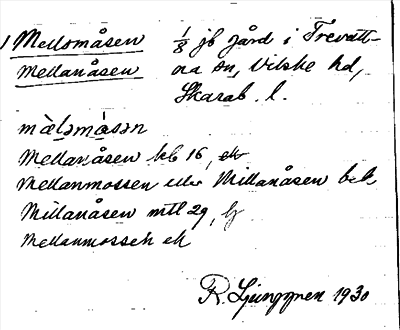 Mellomåsen 1/8 jb gård i Trevatt-
Mellanåsen na sn, Vilske hd,
Skarab. l.
mèlₔmåsₔn
Mellanåsen kb 16, ek
Mellanmossen eller Millanåsen bek
Millanåsen mtl 29, lj
Mellanmossen ek
R. Ljunggren 1930